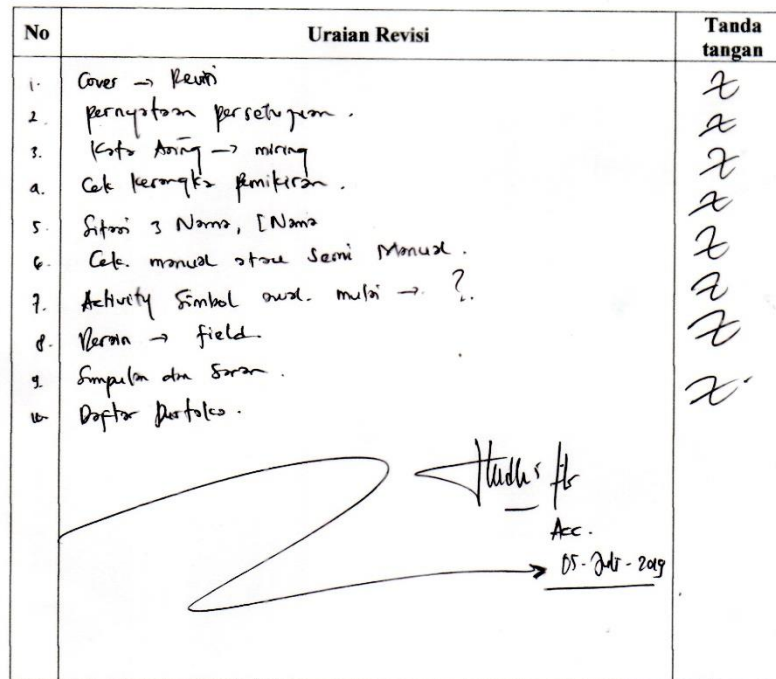 No Uraian Revisi Tanda tangan
1. Cover → Revisi
2. pernyataan persetujuan.
3. Kata Asing → miring
4. Cek kerangka pemikiran.
5. Sitasi 3 Nama, [Nama
6. Cek. manual atau Semi Manual.
7. Activity Simbol awal. mulai → ?
8. Desain → field.
9. Simpulan dan Saran.
10 Daftar Pustaka.
Acc.
05 - Juli - 2019